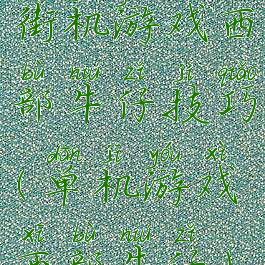 街机游戏西
bù niú zǐ jì qiǎo
部牛仔技巧
dān jī yóu xì
(单机游戏
xī bù niú zǐ
西部牛仔